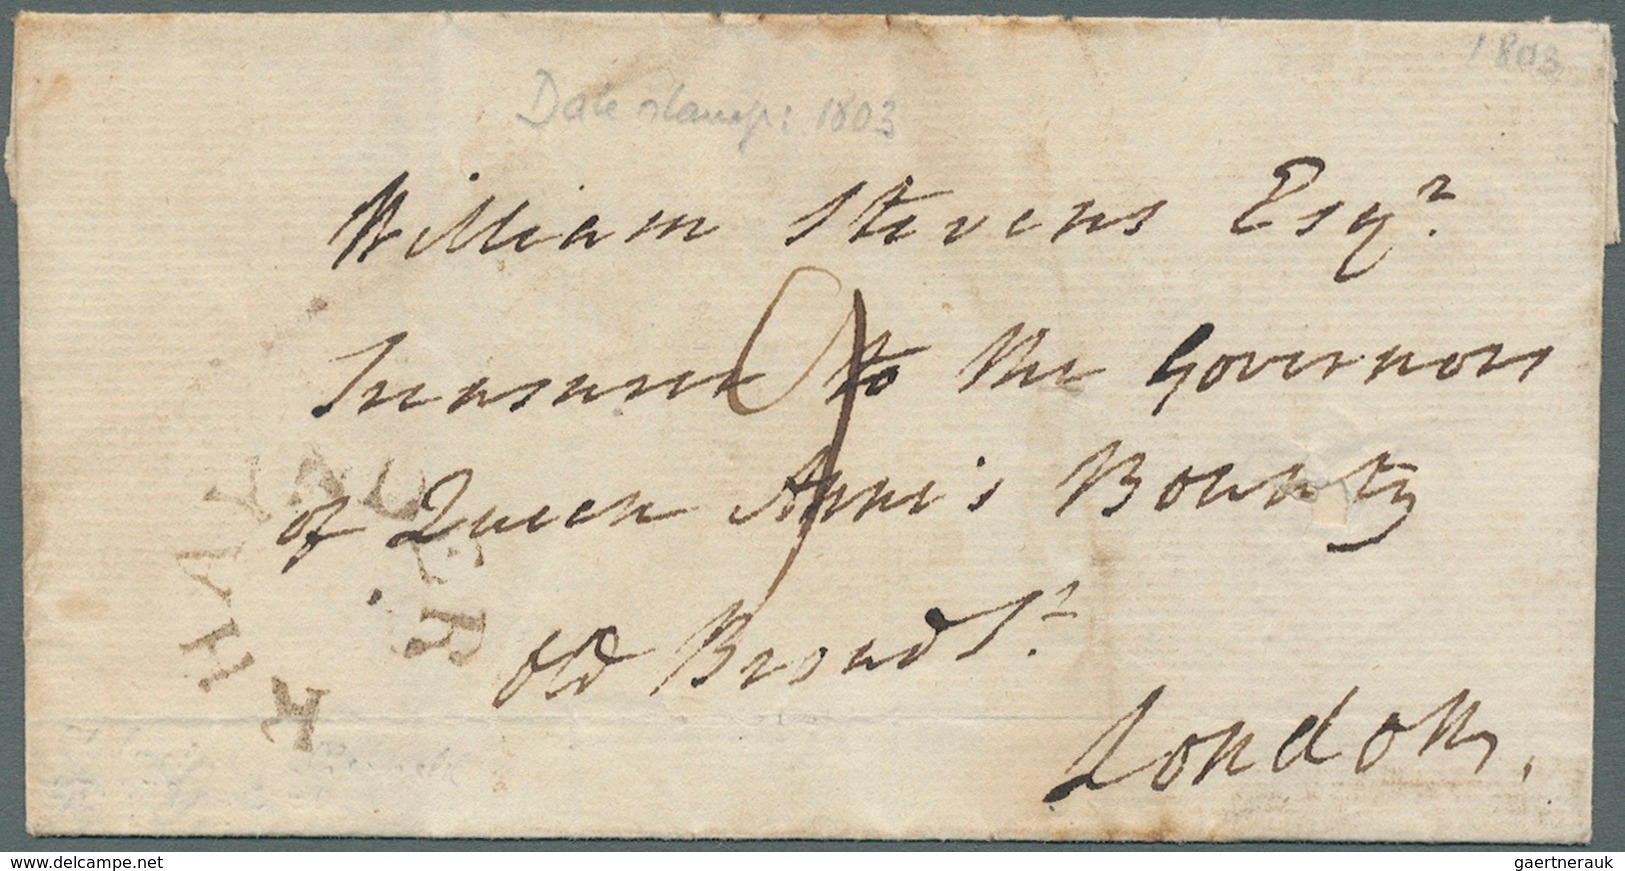 1803
Date stamp: 1803
William Stevens Esqr.
Treasurer to the Governors
of Queen Anne's Bounty
Old Broad St.
London,
www.delcampe.net
gaertnerauk